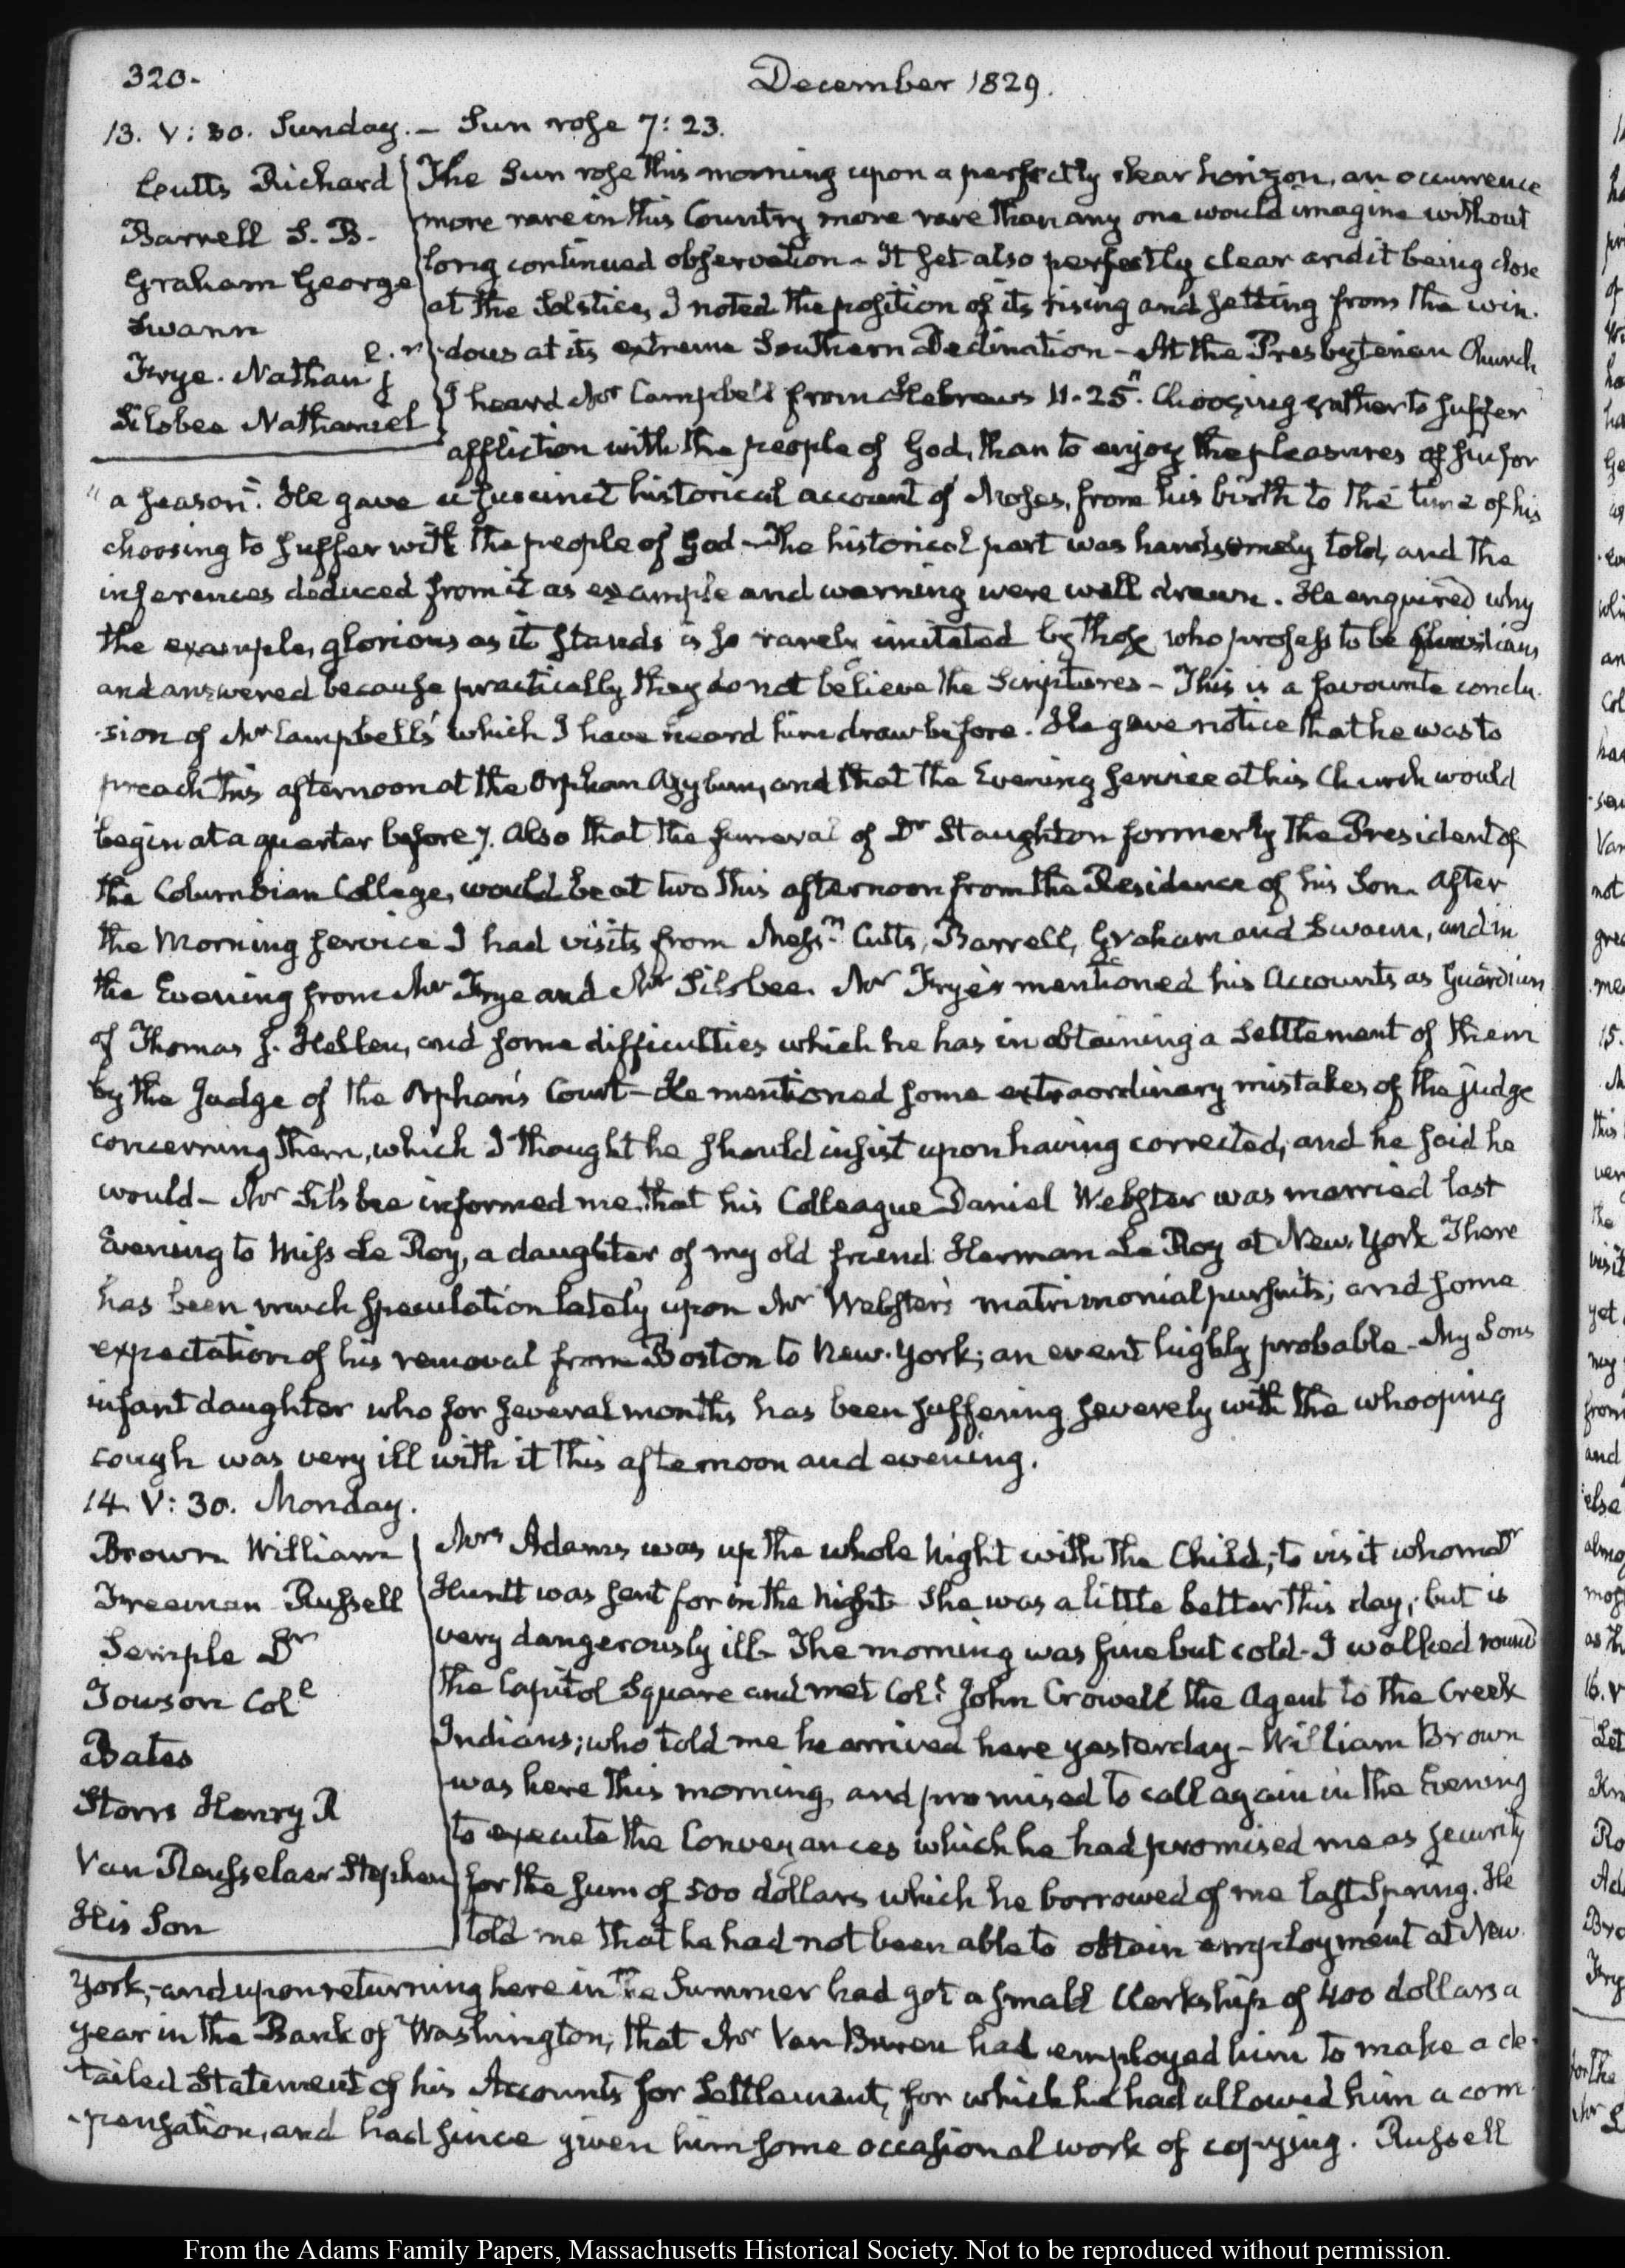 320.
December 1829.
13. V: 30. Sunday. — Sun rose 7: 23.
Cutts Richard
Barrell S. B.
Graham George
Swann
Frye. Nathan j
e. r
Silsbee Nathaniel
The Sun rose this morning upon a perfectly clear horizon, an occurrence
more rare in this Country more rare than any one would imagine without
long continued observation — It set also perfectly clear and it being close
at the Solstice, I noted the position of its rising and setting from the win-
-dows at its extreme Southern Declination — At the Presbyterian Church
I heard Mr Campbell from Hebrews 11. 25. "Choosing rather to suffer
affliction with the people of God, than to enjoy the pleasures of sin for
"a season". He gave a succinct historical account of Moses, from his birth to the time of his
choosing to suffer with the people of God — The historical part was handsomely told, and the
inferences deduced from it as example and warning were well drawn. He enquired why
the example, glorious as it stands is so rarely imitated by those who profess to be Christians
and answered because practically they do not believe the Scriptures — This is a favourite conclu-
-sion of Mr Campbell's which I have heard him draw before. He gave notice that he was to
preach this afternoon at the Orphan Asylum, and that the Evening service at his Church would
begin at a quarter before 7. Also that the funeral of Dr Staughton formerly the President of
the Columbian College, would be at two this afternoon from the Residence of his Son. After
the Morning service I had visits from Messrs Cutts, Barrell, Graham and Swann, and in
the Evening from Mr Frye and Mr Silsbee. Mr Frye's mentioned his Accounts as Guardian
of Thomas J. Hellen, and some difficulties which he has in obtaining a settlement of them
by the Judge of the Orphan's Court — He mentioned some extraordinary mistakes of the judge
concerning them, which I thought he should insist upon having corrected, and he said he
would — Mr Silsbee informed me that his Colleague Daniel Webster was married last
Evening to Miss Le Roy, a daughter of my old friend Herman Le Roy at New-York There
has been much speculation lately upon Mr Webster's matrimonial pursuits; and some
expectation of his removal from Boston to New-York; an event highly probable — My Sons
infant daughter who for several months has been suffering severely with the whooping
cough was very ill with it this afternoon and evening.
14. V: 30. Monday.
Brown William
Freeman Russell
Semple Dr
Towson Col.e
Bates
Storrs Henry R
Van Rensselaer Stephen
His Son
Mrs Adams was up the whole Night with the Child; to visit whom Dr
Huntt was sent for in the Night She was a little better this day; but is
very dangerously ill — The morning was fine but cold — I walked round
the Capitol Square and met Col.l John Crowell the Agent to the Creek
Indians; who told me he arrived here yesterday — William Brown
was here this morning, and promised to call again in the Evening
to execute the Conveyances which he had promised me as security
for the sum of 500 dollars which he borrowed of me last Spring. He
told me that he had not been able to obtain employment at New-
York, and upon returning here in the Summer had got a small Clerkship of 400 dollars a
year in the Bank of Washington; that Mr Van Buren had employed him to make a de-
-tailed Statement of his Accounts for Settlement, for which he had allowed him a com-
-pensation, and had since given him some occasional work of copying. Russell
From the Adams Family Papers, Massachusetts Historical Society. Not to be reproduced without permission.